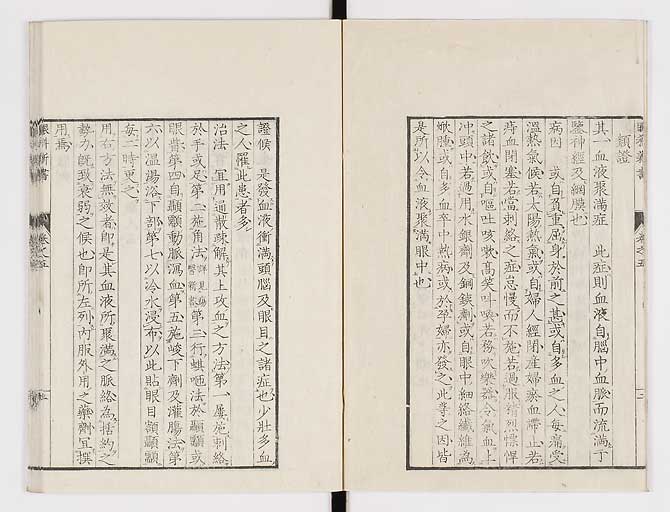 類證
其一血液聚滿症 此症則血液自腦中血脈而流滿于
鑒神經及網膜也
病因 或自負重屈身於前之甚或自多血之人每痛受
溫熱氣候若太陽熱氣或自婦人經閉產婦瘀血滯止若
痔血閉塞若當刺絡之症怠慢而不施若過服猜烈慓悍
之諸飲或自嘔吐咳嗽高笑叫喚若務吹樂器令氣血上
沖頭中若過用水銀劑及鋼鐵劑或自眼中細絡纖維為
焮腫或自多血卒中熱病或於孕婦亦發之此等之因皆
是所以令血液聚滿眼中也
證候 是發血液衝滿頭腦及眼目之諸症也少壯多血
之人罹此患者多
治法 宜用通散疎解其上攻血之方法第一屢施刺絡
於手或足第二施角法 第三行蜞咂法於顳顬或
眼背第四自顳顬動脈瀉血第五施峻下劑及灌腸法第
六以溫湯浴下部第七以冷水浸布以此貼眼目額顳顬
每二時更之
用右方法無效者即是其血液所聚滿之脈絡為括約之
勢力既致衰弱之候也即所左列內服外用之藥劑宜撰
用焉
眼科新書
卷之五